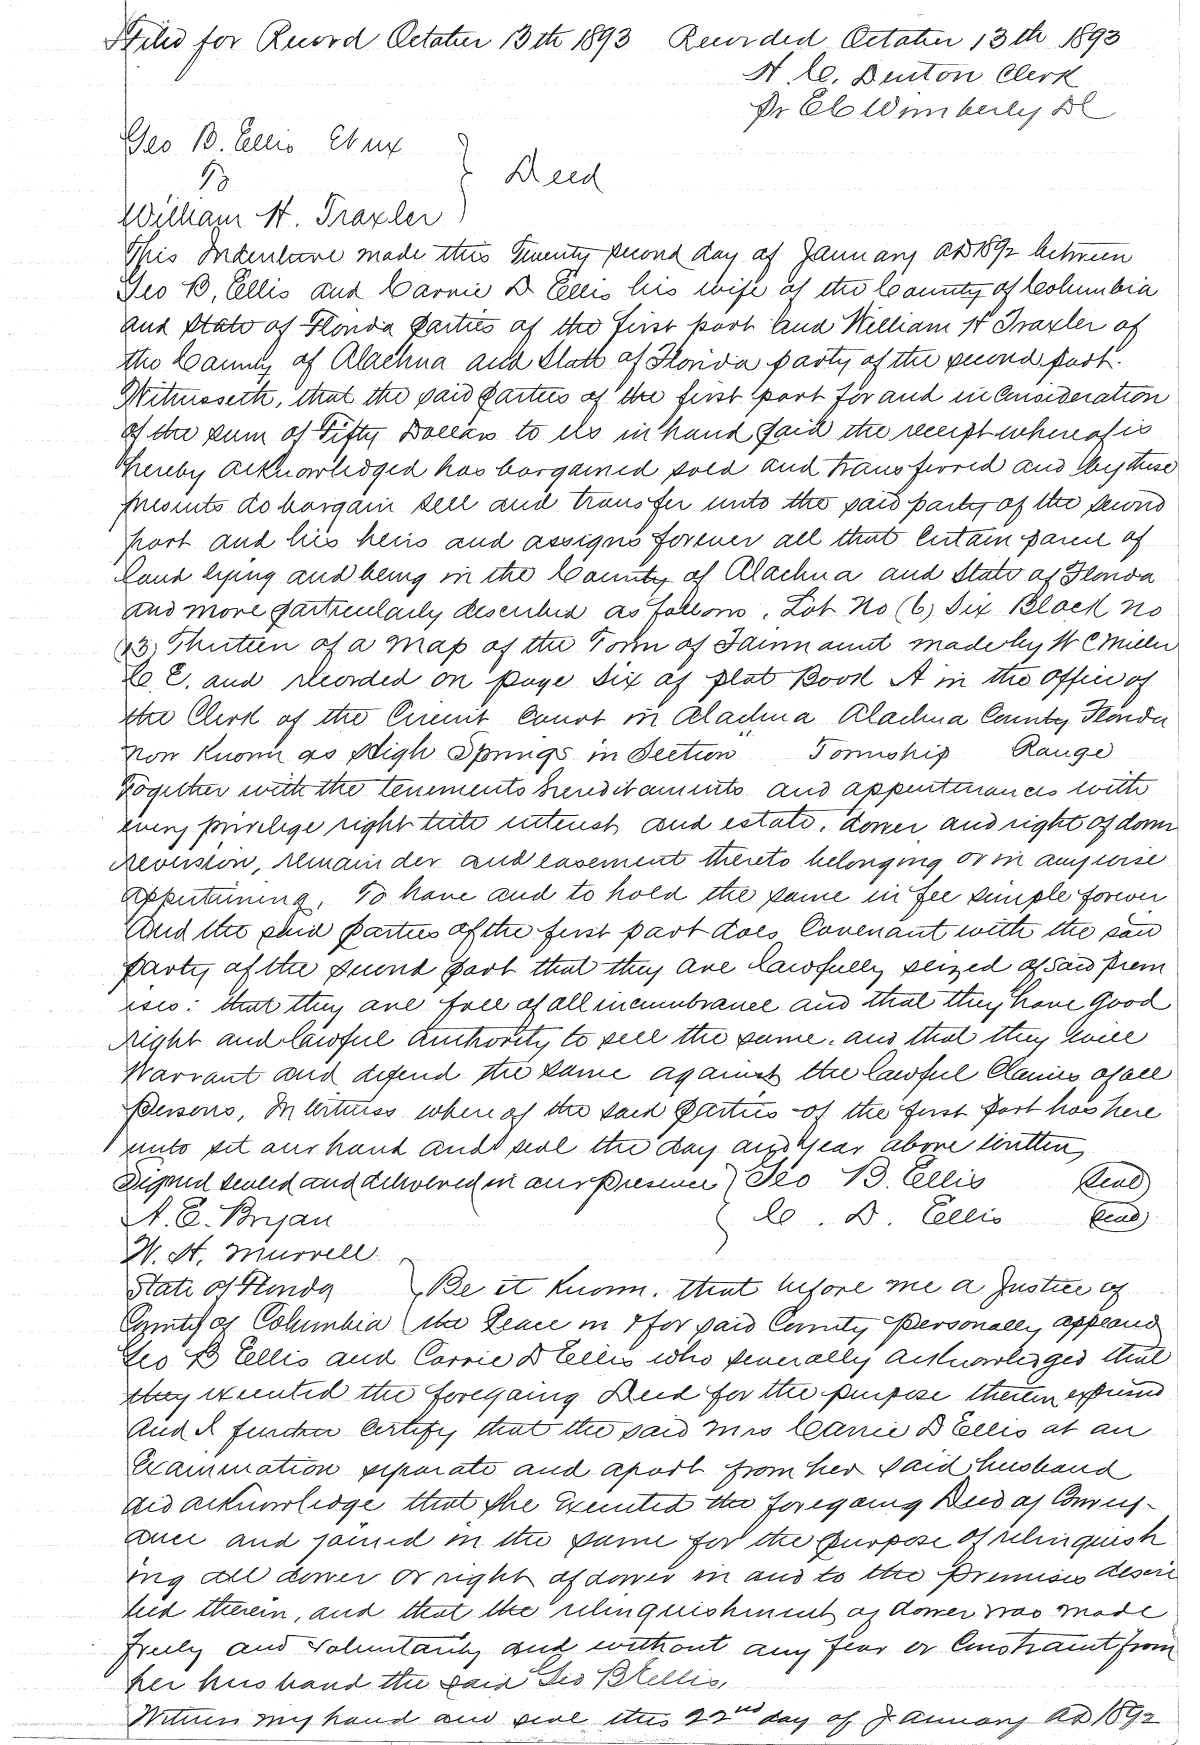 Filed for Record October 13th 1893 Recorded October 13th 1893
H. C. Denton Clerk
Pr E C Wimberly DC
Geo B. Ellis Et ux
To } Deed
William H. Traxler
This Indenture made this Twenty second day of January AD 1892 between
Geo B, Ellis and Carrie D Ellis his wife of the County of Columbia
and State of Florida parties of the first part and William H Traxler of
the County of Alachua and State of Florida party of the second part.
Witnesseth, that the said parties of the first part for and in Consideration
of the sum of Fifty Dollars to us in hand paid the receipt whereof is
hereby acknowledged has bargained sold and transferred and by these
presents do bargain sell and transfer unto the said party of the second
part and his heirs and assigns forever all that Certain parcel of
land lying and being in the County of Alachua and State of Florida
and more particularly described as follows. Lot No (6) Six Block no
(13) Thirteen of a Map of the Town of Fairmount made by W C Miller
C E. and recorded on page Six of plat Book A in the office of
the Clerk of the Circuit Court in Alachua Alachua County Florida
now Known as High Springs in Section " Township Range
Together with the tenements hereditaments and appurtenances with
every privilege right title interest and estate, dower and right of dower
reversion, remainder and easement thereto belonging or in anywise
appertaining, To have and to hold the same in fee simple forever
And the said parties of the first part does Covenant with the said
party of the second part that they are lawfully seized of said prem
ises: that they are free of all incumbrance and that they have good
right and lawful authority to sell the same. and that they will
Warrant and defend the same against the lawful Claims of all
persons, In witness whereof the said parties of the first part has here
unto set our hand and seal the day and year above written,
Signed sealed and delivered in our presence } Geo B. Ellis (Seal)
A. E. Bryan { C. D. Ellis (Seal)
W. H. Murrell
State of Florida } Be it Known. that before me a Justice of
County of Columbia ( the Peace in & for said County personally appeared
Geo B Ellis and Carrie D Ellis who severally acknowledged that
they executed the foregoing Deed for the purpose therein expressed
And I further Certify that the said Mrs Carrie D Ellis at an
Examination separate and apart from her said husband
did acknowledge that she Executed the foregoing Deed of Convey-
ance and joined in the same for the purpose of relinquish
ing all dower or right of dower in and to the premises descri
bed therein, and that the relinquishment of dower was made
freely and voluntarily and without any fear or Constraint from
her husband the said Geo B Ellis,
Witness my hand and seal this 22nd day of January AD 1892